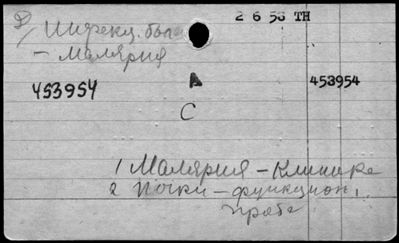 2 6 58 TH
2) Инфекц. бол
- Малярия
453954
A
453954
C
1 Малярия - Клиника
2 Почки - функцион.
проба